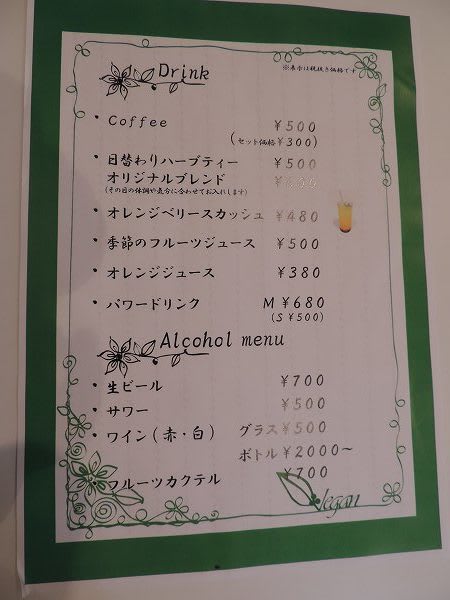 Drink
※表示は税抜き価格です
・Coffee ￥500
(セット価格￥300)
・日替わりハーブティー ￥500
オリジナルブレンド
(その日の体調や気分に合わせてお入れします)
・オレンジベリースカッシュ ￥480
・季節のフルーツジュース ￥500
・オレンジジュース ￥380
・パワードリンク M￥680
(S￥500)
Alcohol menu
・生ビール ￥700
・サワー ￥500
・ワイン(赤・白) グラス￥500
ボトル￥2000〜
フルーツカクテル ￥700
Vegan